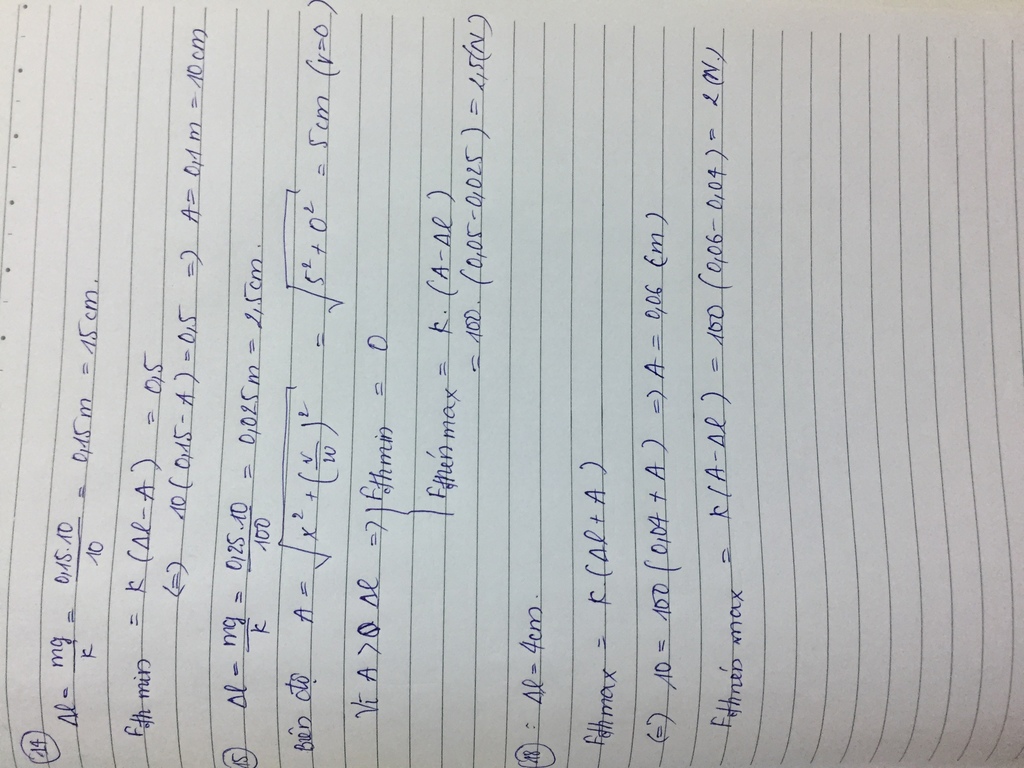 14
Δl = mg/k = 0,15.10/10 = 0,15m = 15cm.
Fđh min = K (Δl - A) = 0,5
(=) 10(0,15 - A) = 0,5 => A = 0,1m = 10cm
15 Δl = mg/k = 0,25.10/100 = 0,025m = 2,5cm.
Biên độ A = √(x² + (v/w)²) = √(5² + 0²) = 5cm (v=0)
Vì A > Δl => Fđh min = 0
Fđh nén max = K. (A - Δl)
= 100. (0,05 - 0,025) = 2,5(N)
18 : Δl = 4cm.
Fđh max = K.(Δl + A)
(=) 10 = 100(0,04 + A) => A = 0,06 (m)
Fđh nén max = K(A - Δl) = 100 (0,06 - 0,04) = 2(N.)